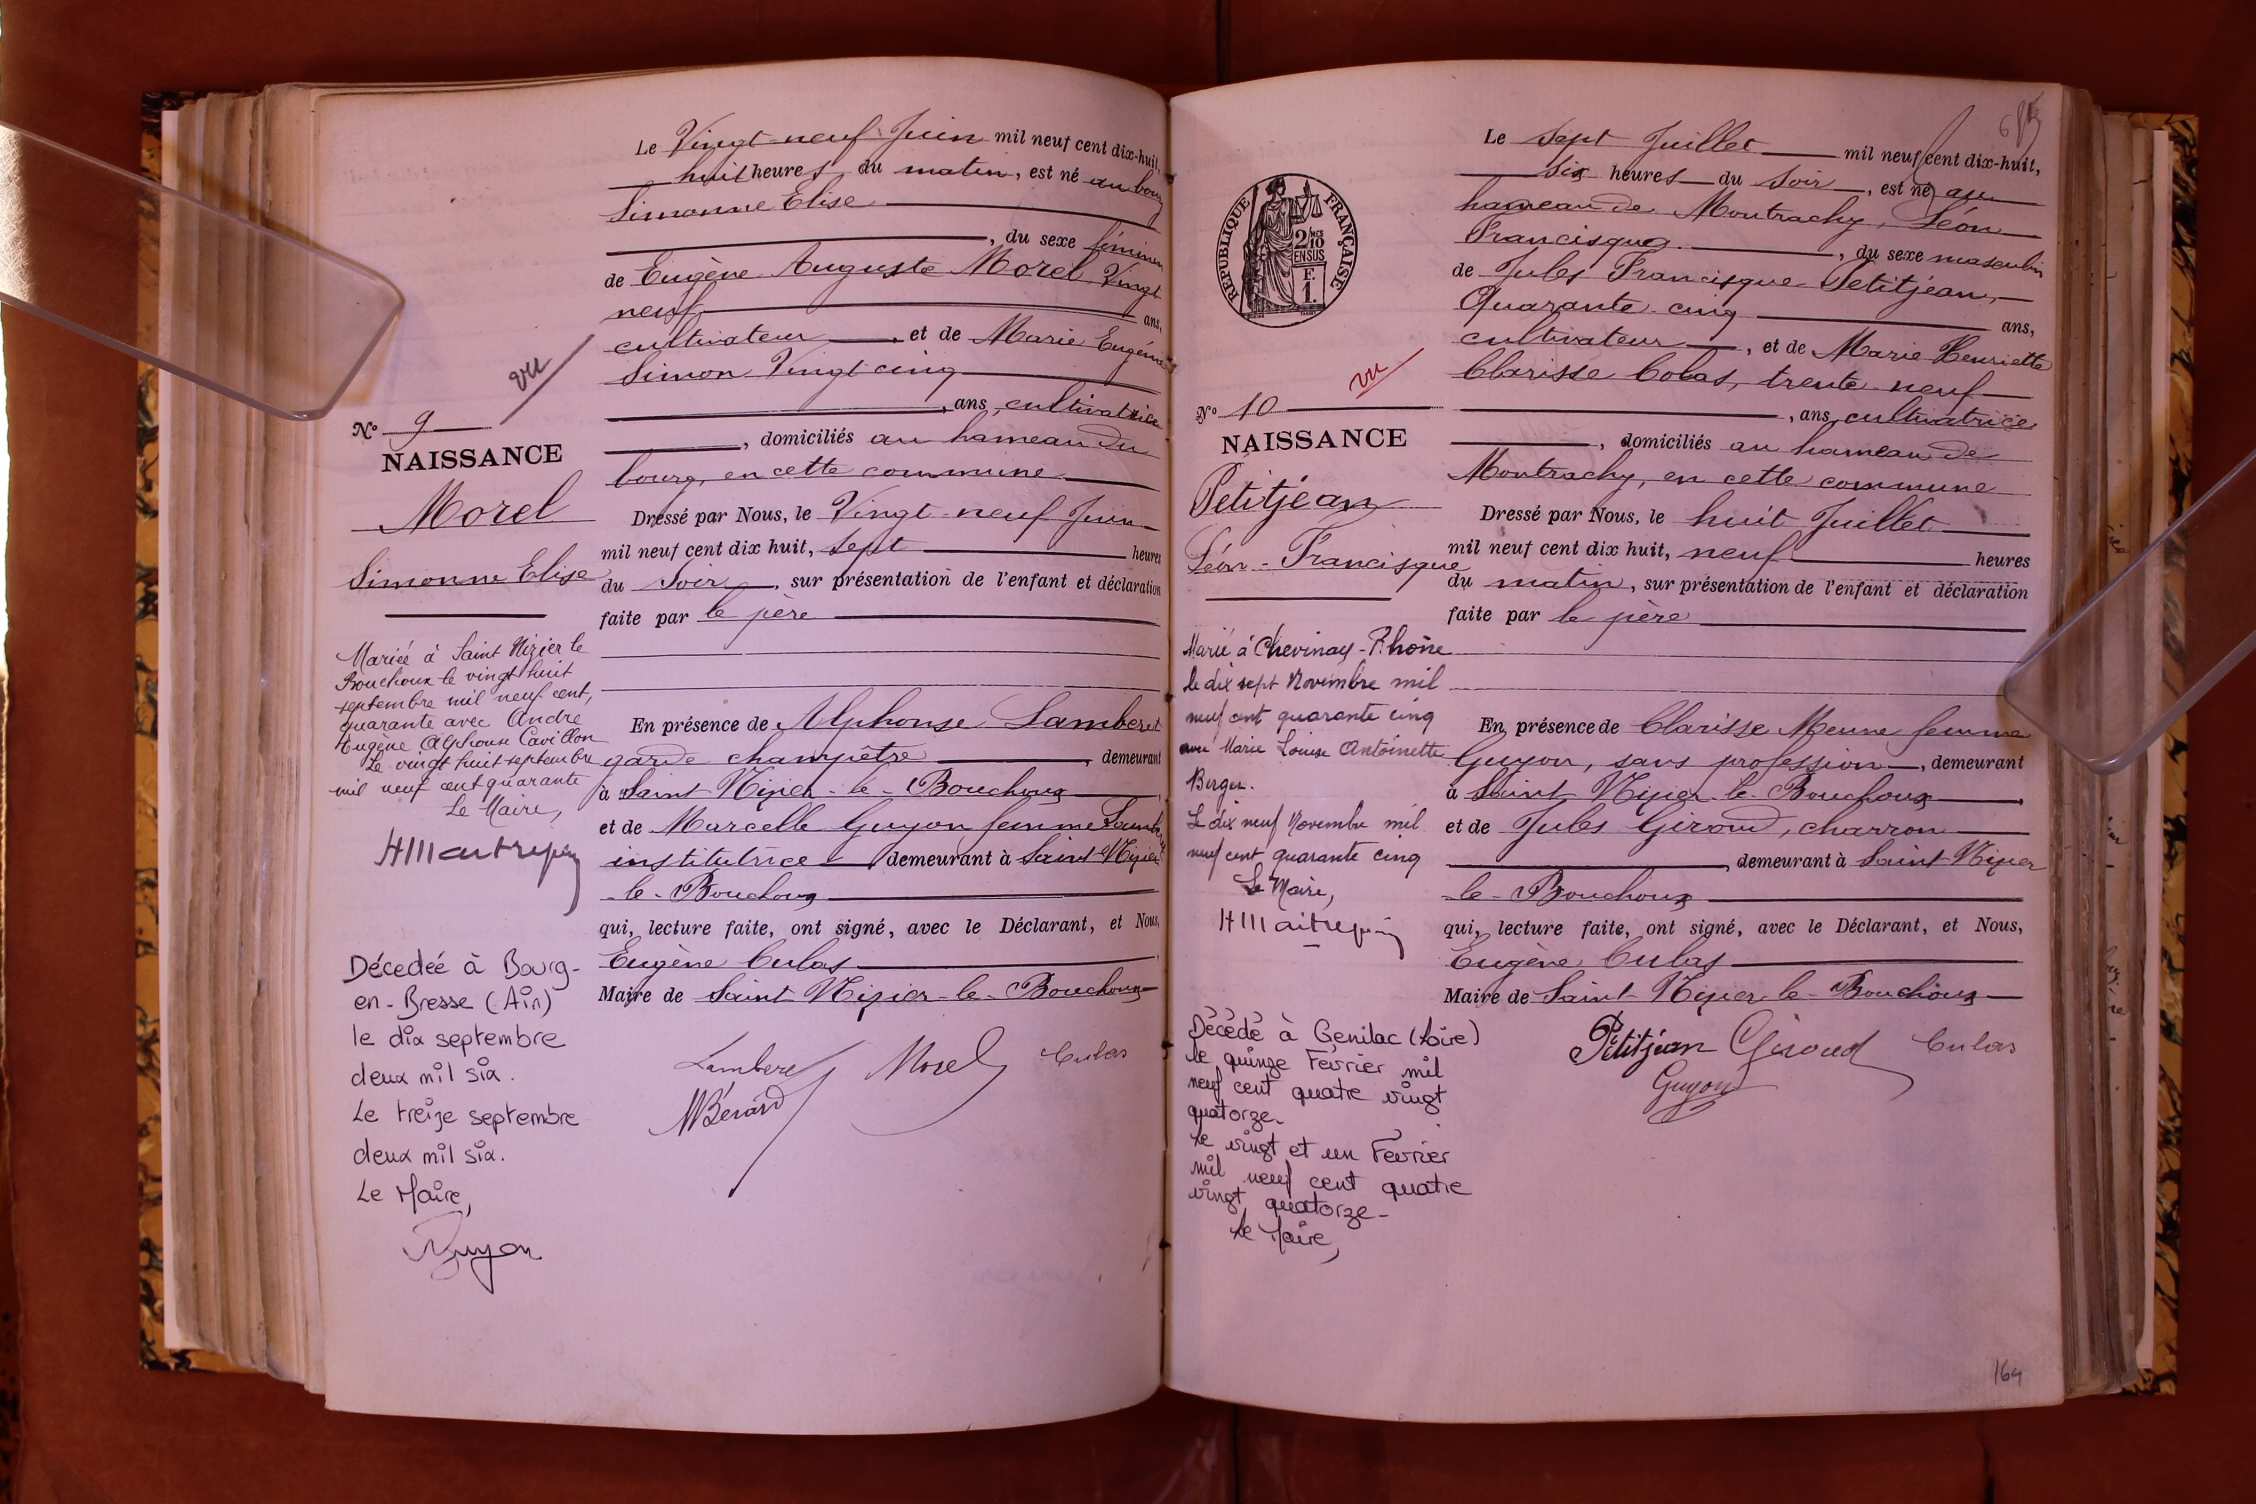 Le Vingt-neuf Juin mil neuf cent dix-huit,
huit heures du matin, est né au bourg
Simonne Elise
, du sexe féminin
de Eugène Auguste Morel Vingt
neuf ans,
cultivateur, et de Marie Eugénie
Simon Vingt cinq
, ans, cultivatrice
, domiciliés au hameau du
bourg, en cette commune
Dressé par Nous, le Vingt-neuf Juin
mil neuf cent dix huit, sept heures
du soir, sur présentation de l'enfant et déclaration
faite par le père
En présence de Alphonse Lamberet
garde champêtre, demeurant
à Saint-Nizier-le-Bouchoux,
et de Marcelle Guyon femme
institutrice demeurant à Saint-Nizier
le-Bouchoux
qui, lecture faite, ont signé, avec le Déclarant, et Nous,
Eugène Culas,
Maire de Saint-Nizier-le-Bouchoux
Lamberet Morel Culas
MBérard
vu
N° 9
NAISSANCE
Morel
Simonne Elise
Mariée à Saint Nizier le
Bouchoux le vingt huit
septembre mil neuf cent,
quarante avec André
Eugène Alphonse Cavillon
Le vingt huit septembre
mil neuf cent quarante
Le Maire,
HMaitrepierre
Décedeé à Bourg-
en-Bresse (Ain)
le dix septembre
deux mil six.
Le treize septembre
deux mil six.
Le Maire,
Guyon
RÉPUBLIQUE FRANÇAISE
2/10 EN SUS
F.
1.
Le sept Juillet mil neuf cent dix-huit,
six heures du soir, est né au
hameau de Montrachy, Léon
Francisque, du sexe masculin
de Jules Francisque Petitjean,
Quarante-cinq ans,
cultivateur, et de Marie Henriette
Clarisse Colas, trente-neuf
, ans, cultivatrice
, domiciliés au hameau de
Montrachy, en cette commune
Dressé par Nous, le huit Juillet
mil neuf cent dix huit, neuf heures
du matin, sur présentation de l'enfant et déclaration
faite par le père
En présence de Clarisse Meune femme
Guyon, sans profession, demeurant
à Saint-Nizier-le-Bouchoux,
et de Jules Giroud, charron
, demeurant à Saint-Nizier
le-Bouchoux
qui, lecture faite, ont signé, avec le Déclarant, et Nous,
Eugène Culas
Maire de Saint-Nizier-le-Bouchoux
Petitjean Giroud Culas
Guyon
vu
N° 10
NAISSANCE
Petitjean
Léon-Francisque
Marié à Chevinay-Rhône
le dix sept Novembre mil
neuf cent quarante cinq
avec Marie Louise Antoinette
Berger.
Le dix neuf Novembre mil
neuf cent quarante cinq
Le Maire,
HMaitrepierre
Décédé à Genilac (Loire)
le quinze Février mil
neuf cent quatre vingt
quatorze.
Le vingt et un Fevrier
mil neuf cent quatre
vingt quatorze-
Le Maire,
164